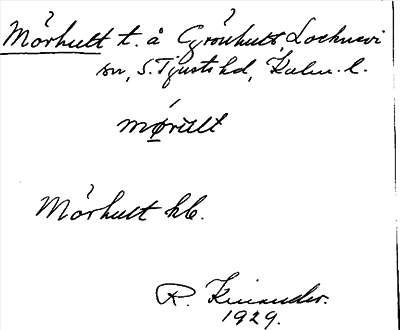 Mörhult t. å Grönhult, Locknevi
sn, S. Tjusts hd, Kalm. l.
mørult
Mörhult hb.
R. Kinander.
1929.